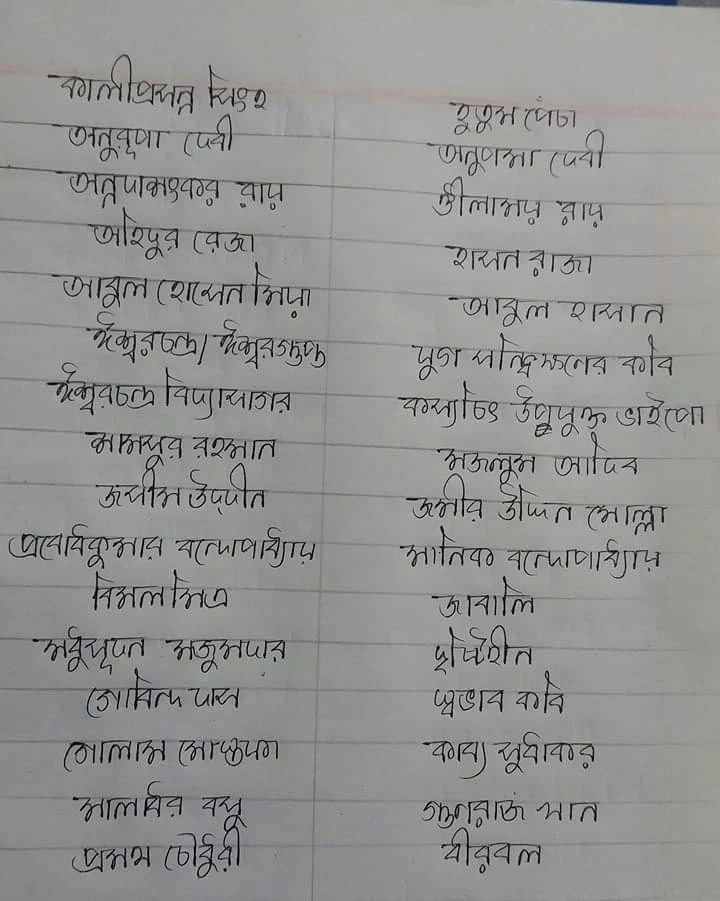 কালীপ্রসন্ন সিংহ হুতুম পেঁচা
অনুরূপা দেবী অনুপমা দেবী
অন্নদাশংকর রায় লীলাময় রায়
অহিদুর রেজা হাসন রাজা
আবুল হোসেন মিয়া আবুল হাসান
ঈশ্বরচন্দ্র/ ঈশ্বরগুপ্ত যুগ সন্ধিক্ষনের কবি
ঈশ্বরচন্দ্র বিদ্যাসাগর কস্যচিৎ উপযুক্ত ভাইপো
শামসুর রহমান মজলুম আদিব
জসীম উদ্দীন জমীর উদ্দিন মোল্লা
প্রবোধকুমার বন্দোপাধ্যায় মানিক বন্দোপাধ্যায়
বিমল মিত্র জাবালি
মধুসূদন মজুমদার দৃষ্টিহীন
গোবিন্দ দাস স্বভাব কবি
গোলাম মোস্তফা কাব্য সুধাকর
মালাধর বসু গুনরাজ খান
প্রমথ চৌধুরী বীরবল